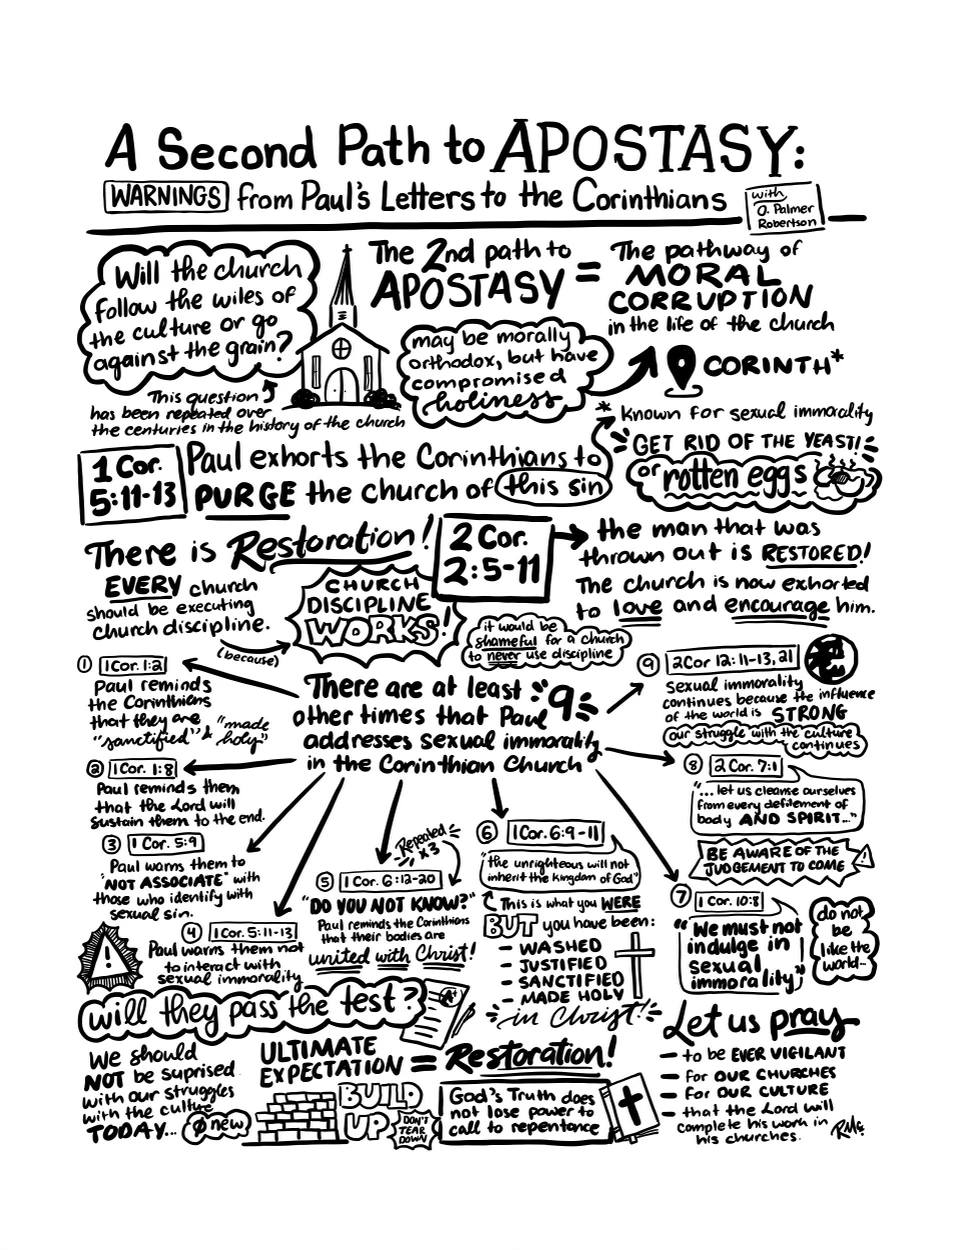 A Second Path to APOSTASY:
WARNINGS from Paul's Letters to the Corinthians
with
O. Palmer
Robertson
Will the church
follow the wiles of
the culture or go
against the grain?
This question
has been repeated over
the centuries in the history of the church
The 2nd path to
APOSTASY =
The pathway of
MORAL
CORRUPTION
in the life of the church
may be morally
orthodox, but have
compromised
holiness
CORINTH*
* known for sexual immorality
1 Cor.
5:11-13
Paul exhorts the Corinthians to
PURGE the church of this sin
GET RID OF THE YEAST!
or rotten eggs
There is Restoration!
2 Cor.
2:5-11
the man that was
thrown out is RESTORED!
The church is now exhorted
to love and encourage him.
EVERY church
should be executing
church discipline.
(because)
CHURCH
DISCIPLINE
WORKS!
it would be
shameful for a church
to never use discipline
There are at least 9
other times that Paul
addresses sexual immorality
in the Corinthian Church
1 1Cor. 1:2
Paul reminds
the Corinthians
that they are
"sanctified" & "made
holy"
2 1Cor. 1:8
Paul reminds them
that the Lord will
sustain them to the end.
3 1 Cor. 5:9
Paul warns them to
"NOT ASSOCIATE" with
those who identify with
sexual sin.
4 1Cor. 5:11-13
Paul warns them not
to interact with
sexual immorality
5 1 Cor. 6:12-20
Repeated
x3
"DO YOU NOT KNOW?"
Paul reminds the Corinthians
that their bodies are
united with Christ!
6 1Cor. 6:9-11
"the unrighteous will not
inherit the kingdom of God"
This is what you WERE
BUT you have been:
- WASHED
- JUSTIFIED
- SANCTIFIED
- MADE HOLY
in Christ!
7 1 Cor. 10:8
"We must not
indulge in
sexual
immorality"
do not
be
like the
world...
8 2 Cor. 7:1
"...let us cleanse ourselves
from every defilement of
body AND SPIRIT..."
BE AWARE OF THE
JUDGEMENT TO COME
!
9 2Cor 12:11-13, 21
Sexual immorality
continues because the influence
of the world is STRONG
our struggle with the culture
continues
!
will they pass the test?
A+
We should
NOT be suprised
with our struggles
with the cultue
TODAY...
Ø new
ULTIMATE
EXPECTATION = Restoration!
BUILD
UP
DON'T
TEAR
DOWN
God's Truth does
not lose power to
call to repentance
Let us pray
- to be EVER VIGILANT
- for OUR CHURCHES
- for OUR CULTURE
- that the Lord will
complete his work in
his churches.
RMc